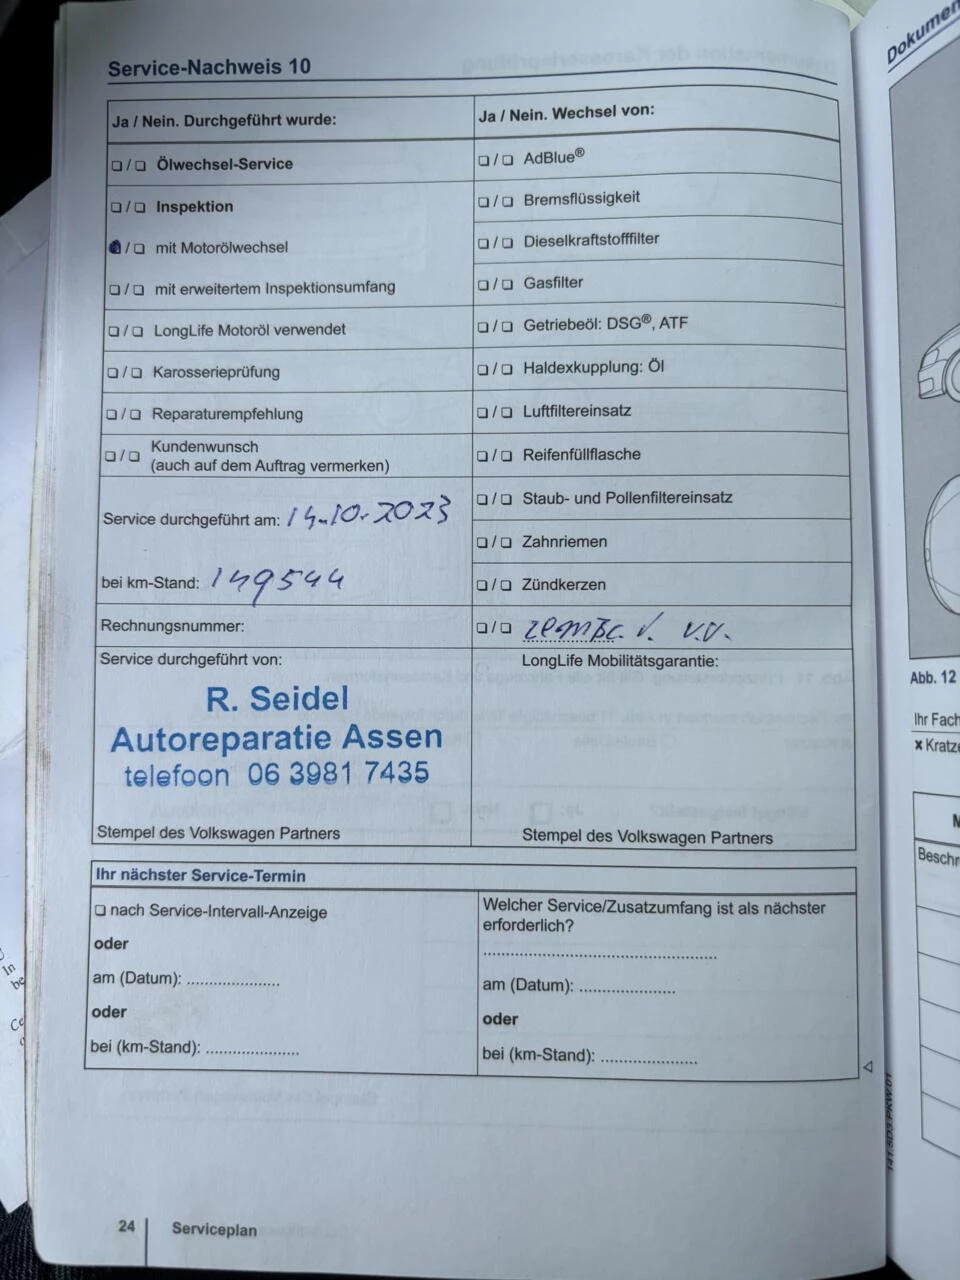 Service-Nachweis 10
Ja / Nein. Durchgeführt wurde:
❑ / ❑ Ölwechsel-Service
❑ / ❑ Inspektion
/ ❑ mit Motorölwechsel
❑ / ❑ mit erweitertem Inspektionsumfang
❑ / ❑ LongLife Motoröl verwendet
❑ / ❑ Karosserieprüfung
❑ / ❑ Reparaturempfehlung
❑ / ❑ Kundenwunsch
(auch auf dem Auftrag vermerken)
Service durchgeführt am: 14-10-2023
bei km-Stand: 149544
Rechnungsnummer:
Service durchgeführt von:
R. Seidel
Autoreparatie Assen
telefoon 06 3981 7435
Stempel des Volkswagen Partners
Ja / Nein. Wechsel von:
❑ / ❑ AdBlue®
❑ / ❑ Bremsflüssigkeit
❑ / ❑ Dieselkraftstofffilter
❑ / ❑ Gasfilter
❑ / ❑ Getriebeöl: DSG®, ATF
❑ / ❑ Haldexkupplung: Öl
❑ / ❑ Luftfiltereinsatz
❑ / ❑ Reifenfüllflasche
❑ / ❑ Staub- und Pollenfiltereinsatz
❑ / ❑ Zahnriemen
❑ / ❑ Zündkerzen
❑ / ❑
LongLife Mobilitätsgarantie:
Stempel des Volkswagen Partners
Ihr nächster Service-Termin
❑ nach Service-Intervall-Anzeige
oder
am (Datum): ....................
oder
bei (km-Stand): ....................
Welcher Service/Zusatzumfang ist als nächster
erforderlich?
am (Datum): ....................
oder
bei (km-Stand): ....................
141.5D3.PKW.01
24 Serviceplan
Dokumen
Abb. 12
Ihr Fach
× Kratze
Beschr